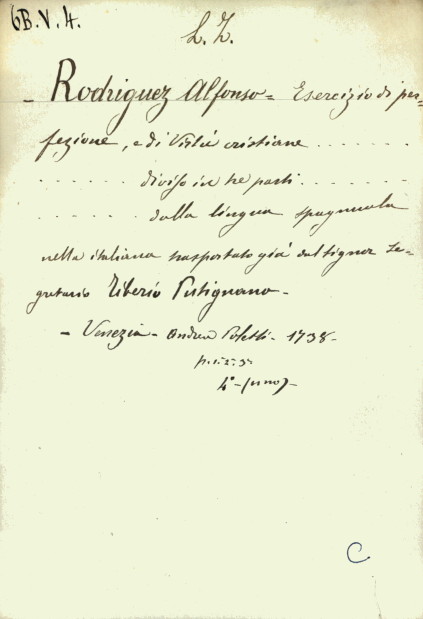 6B.V.4.
L. Z.
- Rodriguez Alfonso = Esercizio di per=
fezione, e di Virtù cristiane . . . . . . .
. . . . . . . diviso in tre parti . . . . . . .
. . . . . . . dalla lingua spagnuola
nella italiana trasportato già dal Signor Se=
gretario Tiberio Putignano -
- Venezia - Andrea Poletti - 1738 -
p. 1a 2a 3a
4° - (uno) -
C